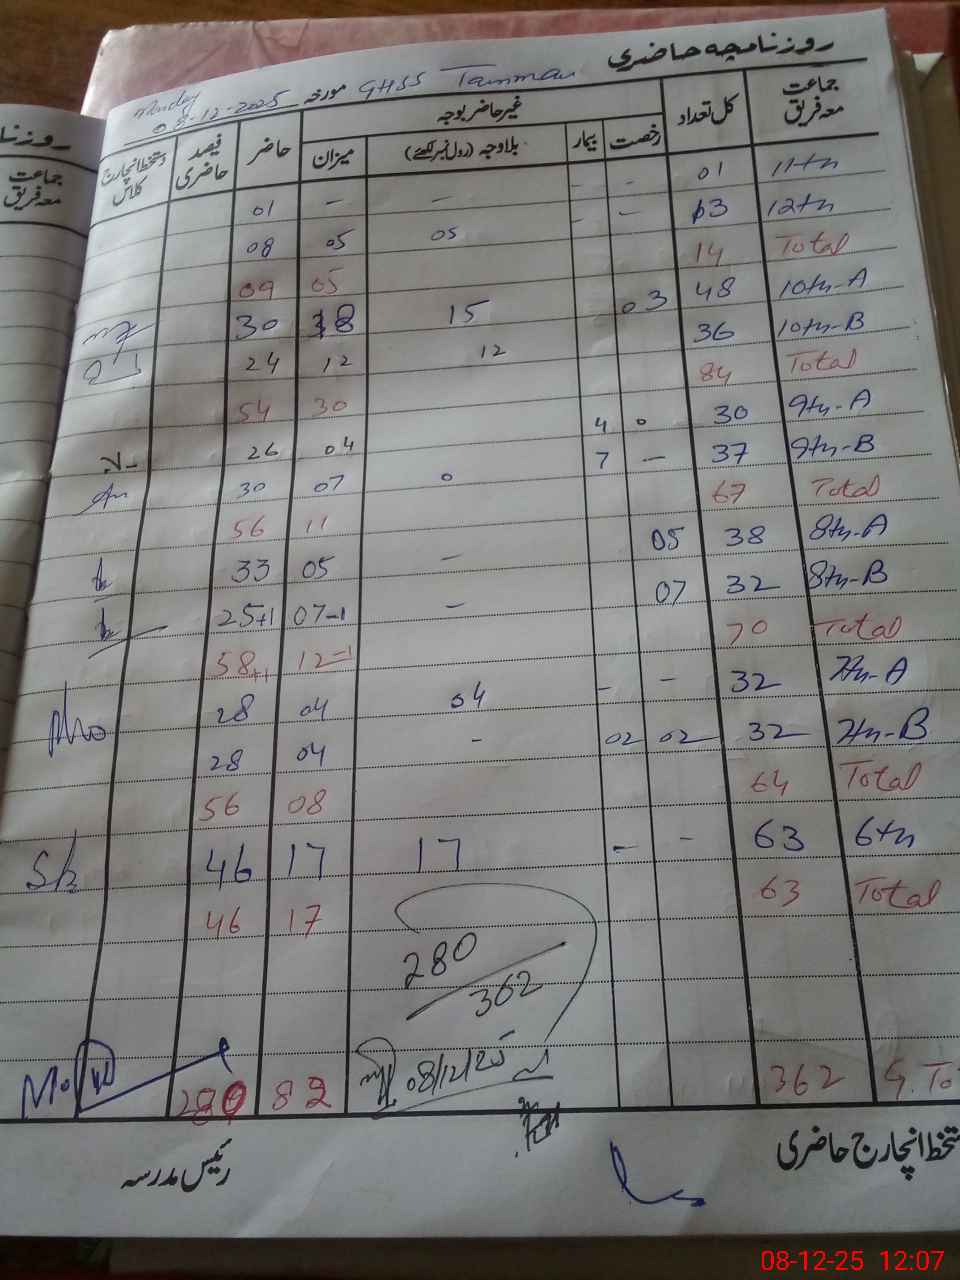 روزنامچہ حاضری
Monday 08-12-2025 مورخہ GHSS Tamman
جماعت معہ فریق کل تعداد غیر حاضر بوجہ حاضر فیصد حاضری دستخط انچارج کلاس
رخصت بیمار بلاوجہ (رول نمبر لکھئے) میزان
11th 01 - - - - 01
12th 13 - - 05 05 08
Total 14 05 09
10th-A 48 03 15 18 30
10th-B 36 12 12 24
Total 84 30 54
9th-A 30 0 4 04 26
9th-B 37 - 7 0 07 30
Total 67 11 56
8th-A 38 05 - 05 33
8th-B 32 07 - 07-1 25+1
Total 70 12-1 58+1
7th-A 32 - - 04 04 28
7th-B 32 02 02 - 04 28
Total 64 08 56
6th 63 - - 17 17 46
Total 63 17 46
280
362
08/12/25
G. To 362 82 280
رئیس مدرسہ
تخط انچارج حاضری
روزنا
جماعت
معہ فریق
08-12-25 12:07